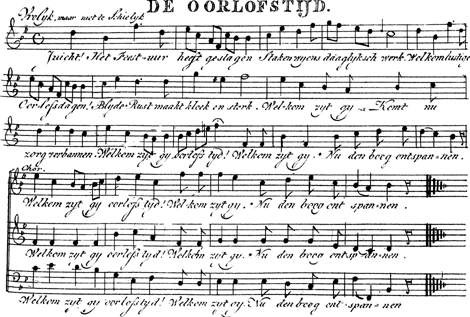 DE OORLOFSTIJD.
Vrolyk, maar niet te Schielyk
Juicht! Het Feest-uur heeft geslagen Staken wy ons daaglyksch werk. Welkom lustige
Oorlofsdagen! Blyde Rust maakt kloek en sterk. Welkom zyt gy - Komt nu
zorg verbannen. Welkom zyt gy oorlofs tyd! Welkom zyt gy. Nu den boog ontspannen.
Chor.
Welkom zyt gy oorlofs tyd! Welkom zyt gy. Nu den boog ont span-nen.
Welkom zyt gy oorlofs tyd! Welkom zyt gy. Nu den boog ontspannen.
Welkom zyt gy oorlofs tyd! Welkom zyt gy. Nu den boog ont spannen